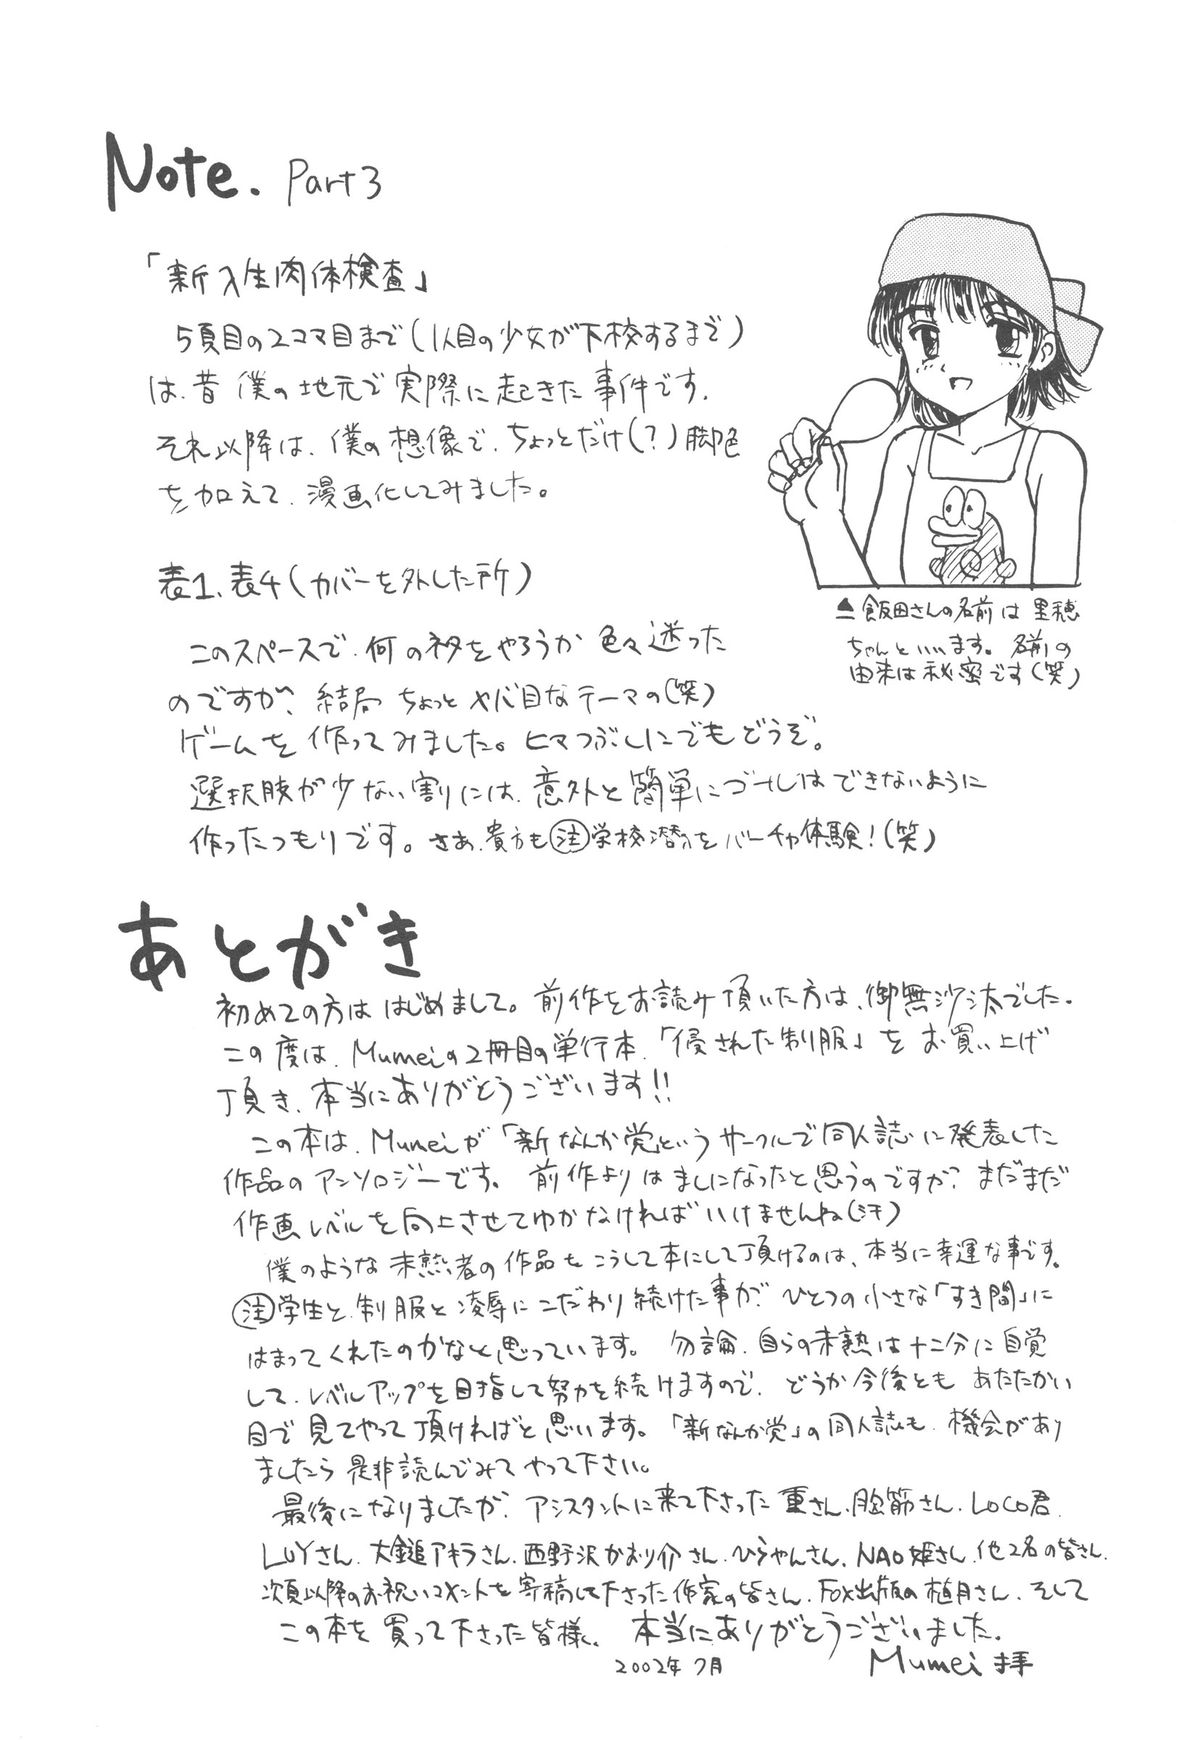 Note. Part3
「新入生肉体検査」
5頁目の2コマ目まで(1人目の少女が下校するまで)
は、昔 僕の地元で実際に起きた事件です。
それ以降は、僕の想像で、ちょっとだけ(?)脚色
を加えて、漫画化してみました。
表1、表4(カバーを外した所)
このスペースで、何のネタをやろうか 色々迷った
のですが、結局 ちょっとヤバ目なテーマの(笑)
ゲームを作ってみました。ヒマつぶしにでもどうぞ。
選択肢が少ない割には、意外と簡単にゴールはできないように
作ったつもりです。さあ、貴方も(注)学校潜入をバーチャ体験!(笑)
▲飯田さんの名前は 里穂
ちゃんといいます。名前の
由来は秘密です(笑)
あとがき
初めての方は はじめまして。前作をお読み頂いた方は、御無沙汰でした。
この度は、Mumeiの2冊目の単行本、「侵された制服」を お買い上げ
頂き、本当にありがとうございます!!
この本は、Mumeiが「新なんか党」というサークルで同人誌に発表した
作品のアンソロジーです。前作よりはましになったと思うのですが、まだまだ
作画レベルを向上させてゆかなければいけませんね(汗)
僕のような未熟者の作品を こうして本にして頂けるのは、本当に幸運な事です。
(注)学生と、制服と凌辱にこだわり続けた事が、ひとつの小さな「すき間」に
はまってくれたのかなと思っています。勿論、自らの未熟は十二分に自覚
して、レベルアップを目指して努力を続けますので、どうか今後とも あたたかい
目で見てやって頂ければと思います。「新なんか党」の同人誌も、機会があり
ましたら是非読んでみてやって下さい。
最後になりましたが、アシスタントに来て下さった 重さん、胸筋さん、LOCO君、
LUYさん、大鎚アキラさん、西野沢かおり介さん、ひらやんさん、NAO姫さん、他2名の皆さん、
次頁以降のお祝いコメントを寄稿して下さった作家の皆さん、FOX出版の植月さん、そして
この本を買って下さった皆様、本当にありがとうございました。
2002年7月 Mumei 拝